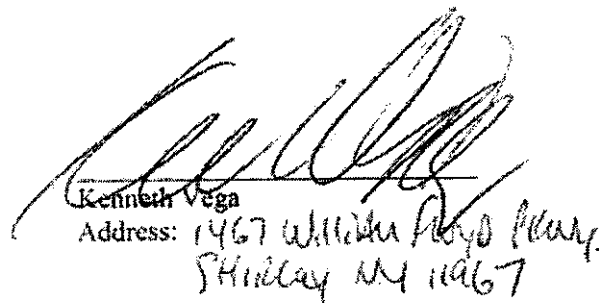 Kenneth Vega
Address: 1467 William Floyd Pkwy.
Shirley NY 11967